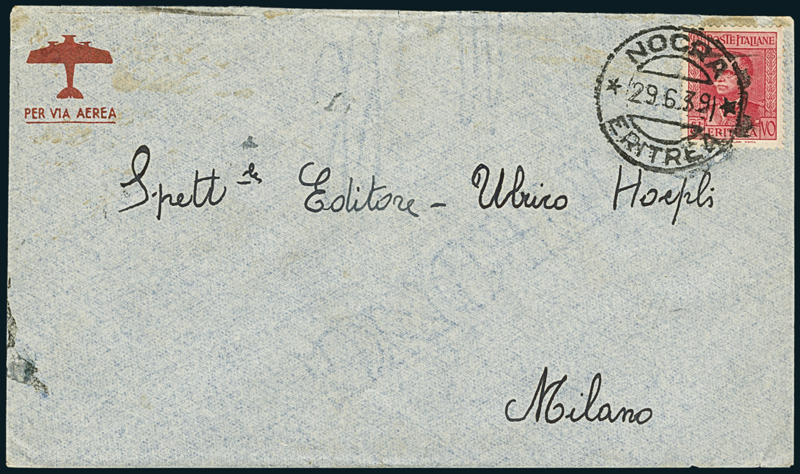 PER VIA AEREA
NOCRA
29.6.39
ERITREA
POSTE ITALIANE
ERITREA
Spett.le Editore - Ulrico Hoepli
Milano